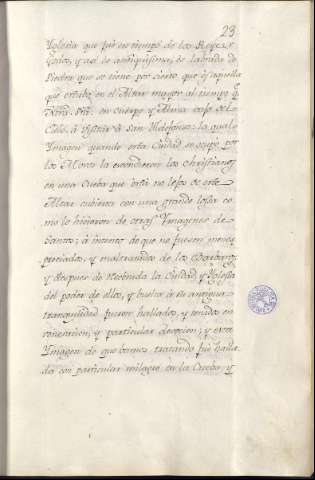 23
Yglesia que fué en tiempo de los Reyes
Godos, y asi es antiquisima, es labrada de
Piedra que se tiene por cierto que es aquella
que estaba en el Altar mayor al tiempo q.
Ntra. Sra. en cuerpo y Alma baxó del
Cielo á visitar á San Yldefonso: la qual
Ymagen quando esta Ciudad se ocupó por
los Moros la escondieron los christianos
en una Cueba que está no lejos de este
Altar cubierta con una grande losa co
mo lo hicieron de otras Ymagenes de
Santos; á intento de que no fuesen menos
preciados, y maltratados de los Barbaros,
y despues de recobrada la Ciudad, y Yglesia
del poder de ellos, y buelta á su antigua
tranquilidad fueron hallados, y tenidos en
veneracion, y particular devocion; y esta
Ymagen de que bamos tratando fué halla
da con particular milagro en la Cueba, y